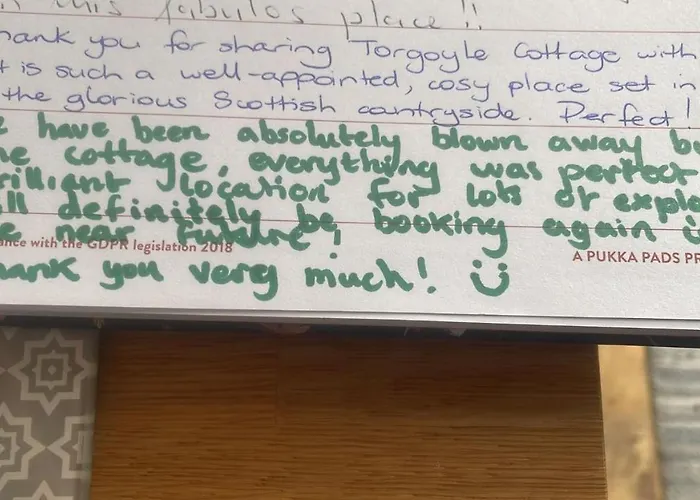 this fabulos place!!
hank you for sharing Torgoyle Cottage with
t is such a well-appointed, cosy place set in
the glorious Scottish countryside. Perfect!
e have been absolutely blown away b
he cottage, everything was perfect
rilliant location for lots of explo
ll definitely be booking again
e near future!
ance with the GDPR legislation 2018
A PUKKA PADS PR
hank you very much!